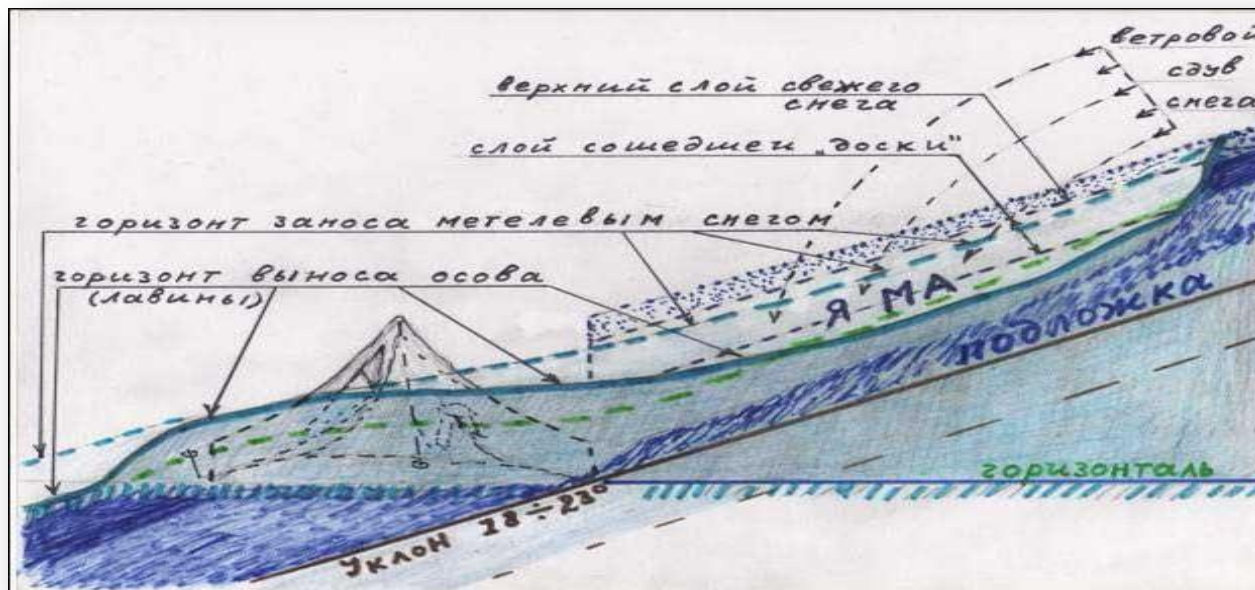 ветровой
сдув
снега
верхний слой свежего
снега
слой сошедшей „доски"
горизонт заноса метелевым снегом
горизонт выноса осова
(лавины)
ЯМА
подложка
горизонталь
уклон 18÷23°